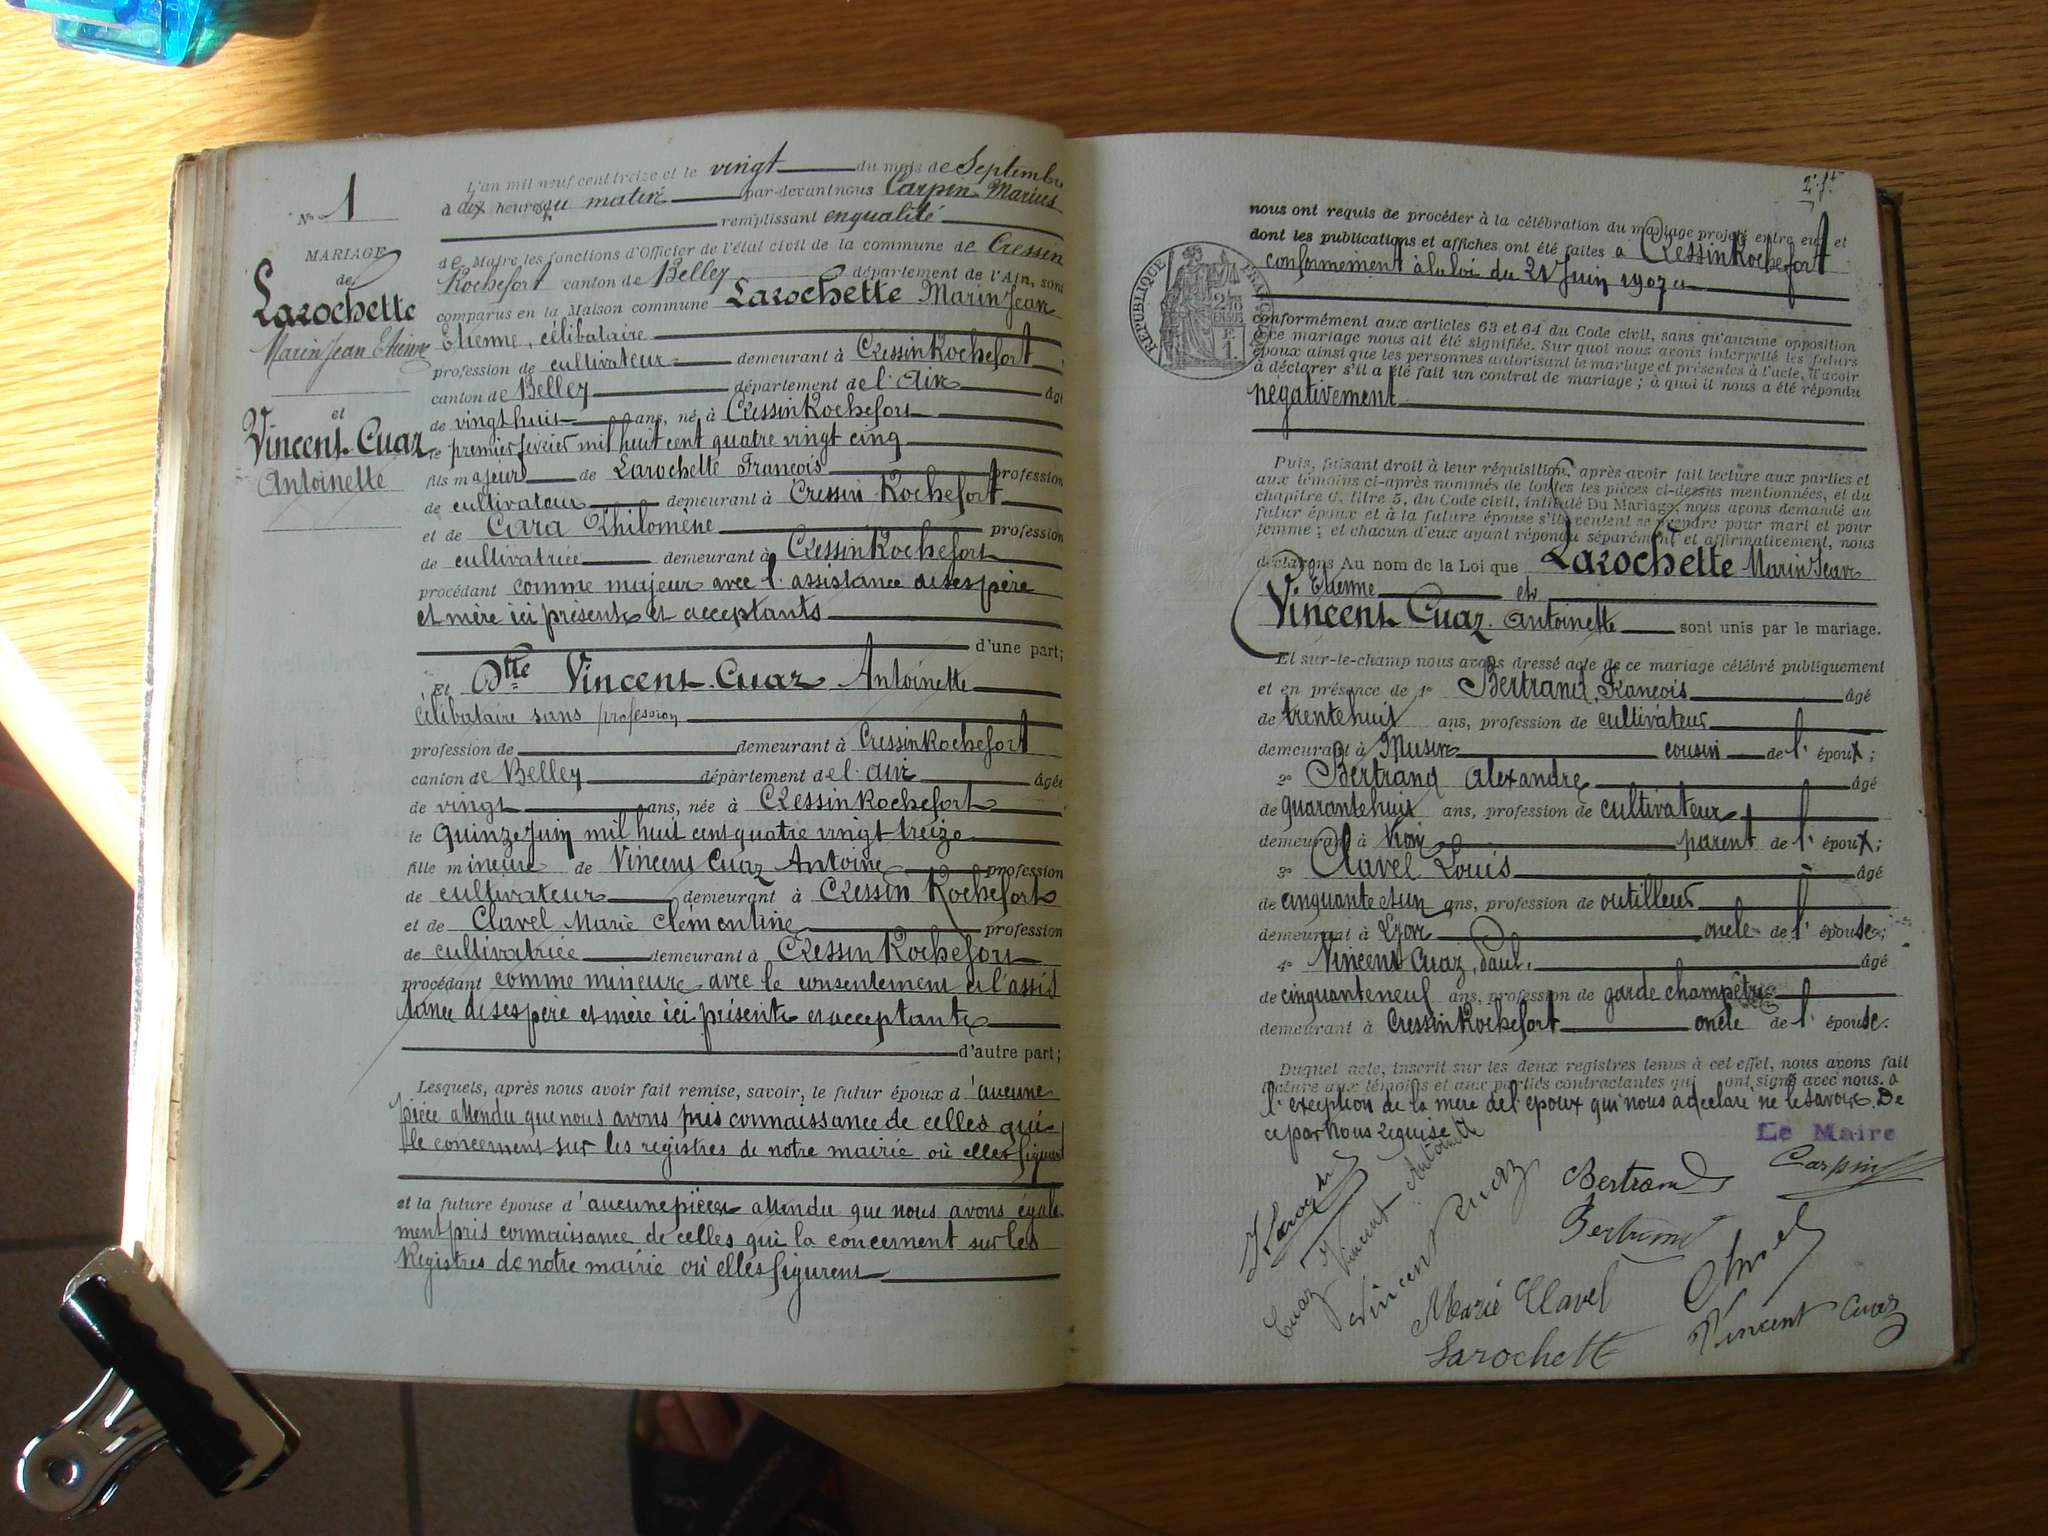 N° 1
MARIAGE
de
Larochette
Marin Jean Etienne
et
Vincent Cuaz
Antoinette
L'an mil neuf cent treize et le vingt du mois de Septembre
à dix heures du matin par-devant nous Carpin Marius
remplissant en qualité
de Maire les fonctions d'Officier de l'état civil de la commune de Cressin
Rochefort canton de Belley département de l'Ain, sont
comparus en la Maison commune Larochette Marin Jean
Etienne, célibataire
profession de cultivateur demeurant à Cressin Rochefort
canton de Belley département de l'Ain âgé
de vingt huit ans, né à Cressin Rochefort
le premier fevrier mil huit cent quatre vingt cinq
fils majeur de Larochette François profession
de cultivateur demeurant à Cressin Rochefort
et de Cara Philomène profession
de cultivatrice demeurant à Cressin Rochefort
procédant comme majeur avec l'assistance de ses père
et mère ici présents et acceptants
d'une part;
Et Dlle Vincent Cuaz Antoinette
célibataire sans profession
profession de demeurant à Cressin Rochefort
canton de Belley département de l'Ain âgée
de vingt ans, née à Cressin Rochefort
le Quinze Juin mil huit cent quatre vingt treize
fille mineure de Vincent Cuaz Antoine profession
de cultivateur demeurant à Cressin Rochefort
et de Clavel Marie Clémentine profession
de cultivatrice demeurant à Cressin Rochefort
procédant comme mineure avec le consentement et l'assis
tance de ses père et mère ici présents et acceptants
d'autre part;
Lesquels, après nous avoir fait remise, savoir, le futur époux d'aucune
pièce attendu que nous avons pris connaissance de celles qui
le concernent sur les registres de notre mairie où elles figurent
et la future épouse d'aucune pièces attendu que nous avons égale
ment pris connaissance de celles qui la concernent sur les
Registres de notre mairie où elles figurent
nous ont requis de procéder à la célébration du mariage projeté entre eux et
dont les publications et affiches ont été faites à Cressin Rochefort
conformement à la loi du 21 Juin 1907
RÉPUBLIQUE FRANÇAISE
conformément aux articles 63 et 64 du Code civil, sans qu'aucune opposition
à ce mariage nous ait été signifiée. Sur quoi nous avons interpellé les futurs
époux ainsi que les personnes autorisant le mariage et présentes à l'acte, d'avoir
à déclarer s'il a été fait un contrat de mariage; à quoi il nous a été répondu
négativement
Puis, faisant droit à leur réquisition, après avoir fait lecture aux parties et
aux témoins ci-après nommés de toutes les pièces ci-dessus mentionnées, et du
chapitre 6, titre 5, du Code civil, intitulé Du Mariage, nous avons demandé au
futur époux et à la future épouse s'ils veulent se prendre pour mari et pour
femme; et chacun d'eux ayant répondu séparément et affirmativement, nous
déclarons Au nom de la Loi que Larochette Marin Jean
Etienne et
Vincent Cuaz Antoinette sont unis par le mariage.
Et sur-le-champ nous avons dressé acte de ce mariage célébré publiquement
et en présence de 1° Bertrand François âgé
de trente huit ans, profession de cultivateur
demeurant à Musin cousin de l'époux;
2° Bertrand Alexandre âgé
de quarante huit ans, profession de cultivateur
demeurant à parent de l'époux;
3° Clavel Louis âgé
de cinquante et un ans, profession de outilleur
demeurant à Lyon oncle de l'épouse;
4° Vincent Cuaz, Paul, âgé
de cinquante neuf ans, profession de garde champêtre
demeurant à Cressin Rochefort oncle de l'épouse.
Duquel acte, inscrit sur les deux registres tenus à cet effet, nous avons fait
lecture aux témoins et aux parties contractantes qui ont signé avec nous. à
l'exception de la mère de l'époux qui nous a declaré ne le savoir. De
ce par nous requise
Le Maire
Carpin
Bertrand
Bertrand
Cuaz Vincent Antoinette
Vincent Cuaz
Marie Clavel
Clavel
Larochette
Vincent Cuaz